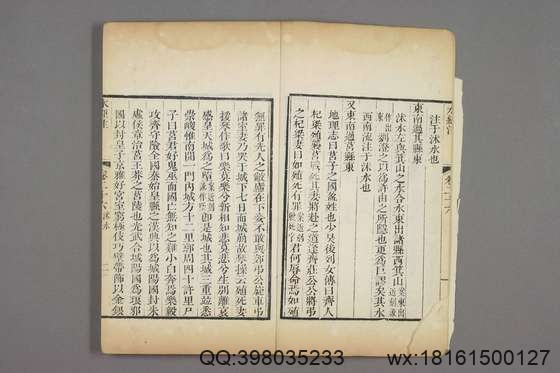 水經注
卷二十六
注于沭水也
東南過其縣東
沭水左與武山之水合水東出諸縣西箕山
西南流注于沭水
又東南過莒縣東
地理志曰莒子之國盈姓也少昊後列女傳曰齊人
杞梁殖襲莒戰死其妻將赴之道逢齊莊公公將弔
之杞梁妻曰如殖死有罪君何辱命焉如殖
無罪有先人之敝廬在下妾不敢與郊弔公旋車弔
諸室妻乃哭于城下七日而城崩故琴操云殖死妻
援琴作歌曰樂莫樂兮新相知悲莫悲兮生別離哀
感皇天城爲之墮即是城也其城三重並悉
崇峻惟南開一門內城方十二里郭周四十許里尸
子曰莒君好鬼巫而國亡無知之難小白奔焉樂毅
攻齊守險全國秦始皇縣之漢興以爲城陽國封朱
虛侯章治莒王莽之莒陵也光武合城陽國爲琅邪
國以封皇子京雅好宮室窮極伎巧壁帶飾以金銀
水經注
卷二十六 沭水
QQ:398035233 wx:18161500127